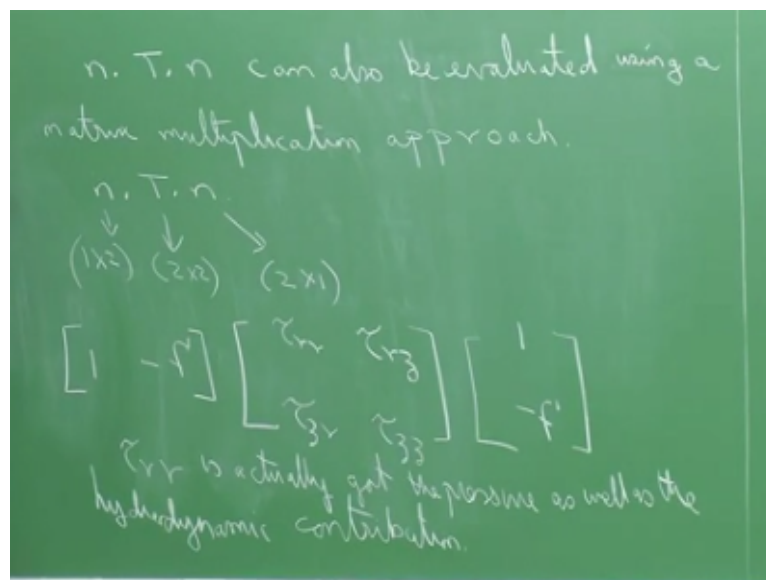 n. T. n can also be evaluated using a
matrix multiplication approach.
n. T. n.
(1x2) (2x2) (2x1)
[1 -f'] [τrr τrz τzr τzz] [1 -f']
τrr is actually got the pressure as well as the
hydrodynamic contribution.